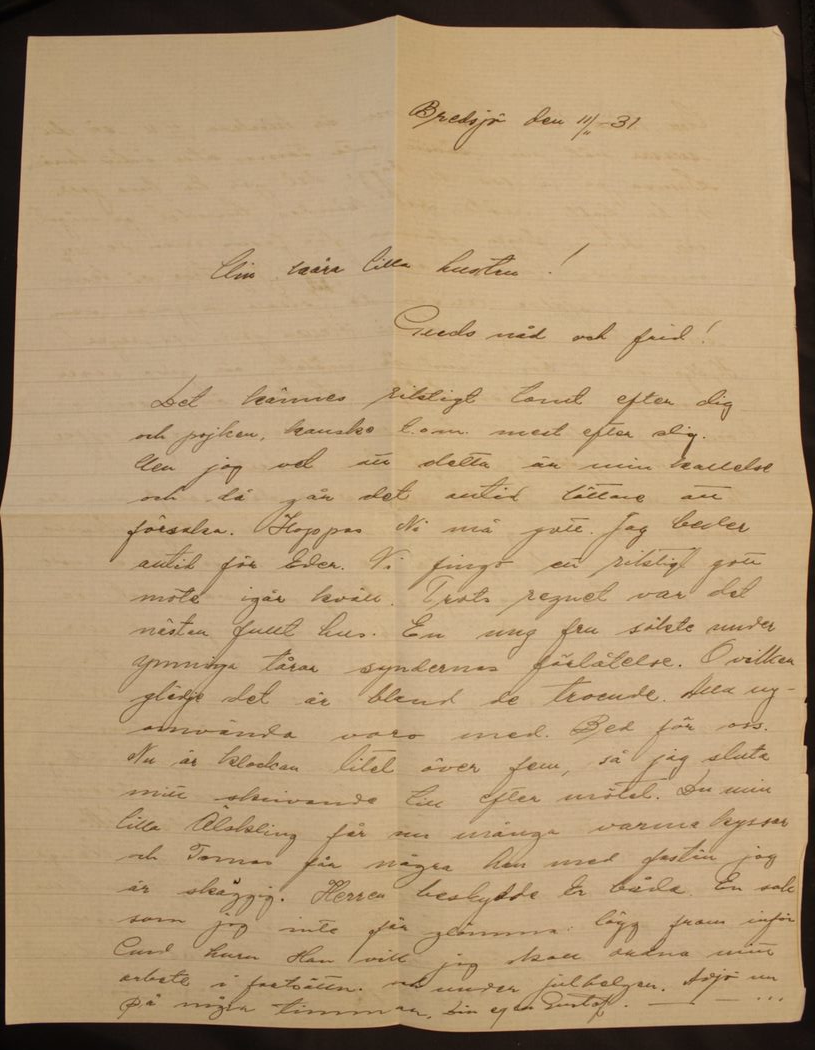 Bredsjö den 11/11-31
Min kära lilla hustru!
Guds nåd och frid!
Det kännes riktigt tomt efter dig
och pojken, kanske t.o.m. mest efter dig.
Men jag vet att detta är min kallelse
och då går det alltid lättare att
försaka. Hoppas Ni må gott. Jag beder
alltid för Eder. Vi fingo en riktigt gott
möte igår kväll. Trots regnet var det
nästan fullt hus. En ung fru sökte under
ymniga tårar syndernas förlåtelse. O vilken
glädje det är bland de troende. Alla ny-
omvända voro med. Bed för oss.
Nu är klockan litet över fem, så jag sluta
mitt skrivande till efter mötet. Du min
lilla Älskling får nu många varma kyssar
och Tomas får några han med fastän jag
är skäggig. Herren beskydde Er båda. En sak
som jag inte får glömma: lägg fram inför
Gud huru Han vill jag skall ordna mitt
arbete i fortsättn. och under julhelgen. Adjö nu
på några timmar, din egen Gustaf. — — ...